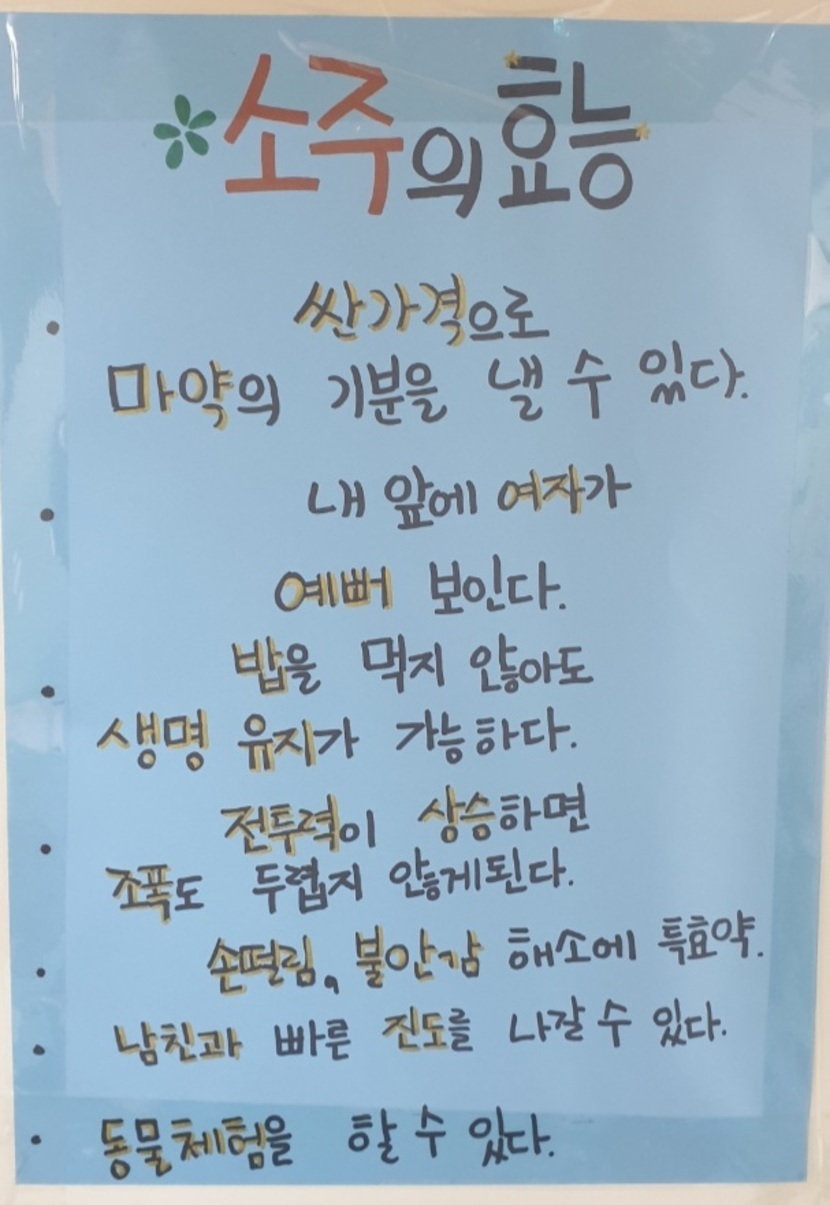 소주의효능
싼가격으로
마약의 기분을 낼 수 있다.
내 앞에 여자가
예뻐 보인다.
밥을 먹지 않아도
생명 유지가 가능하다.
전투력이 상승하면
조폭도 두렵지 않게된다.
손떨림, 불안감 해소에 특효약.
남친과 빠른 진도를 나갈 수 있다.
동물체험을 할 수 있다.